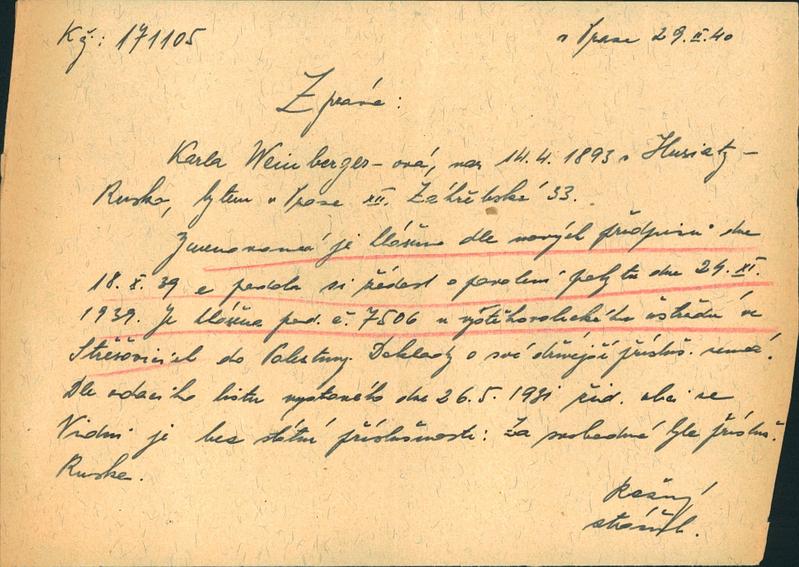 Kž: 171105
v Praze 29.II.40
Zpráva:
Karla Weinberger-ová, nar. 14.4.1893 v Husiaty-
Rusko, bytem v Praze XII. Záhřebská 33.
Jmenovaná je hlášena dle nových předpisů dne
18.X.39 a podala si žádost o povolení pobytu dne 24.XI.
1939. Je hlášena pod. č. 7506 u vystěhovaleckého ústředí ve
Střešovicích do Palestiny. Doklady o své dřívější přísluš. nemá.
Dle oddacího listu vystaveného dne 26.5.1921 žid. obcí ve
Vídni je bez státní příslušnosti: Za svobodna byla přísluš.
Ruska.
strážm.